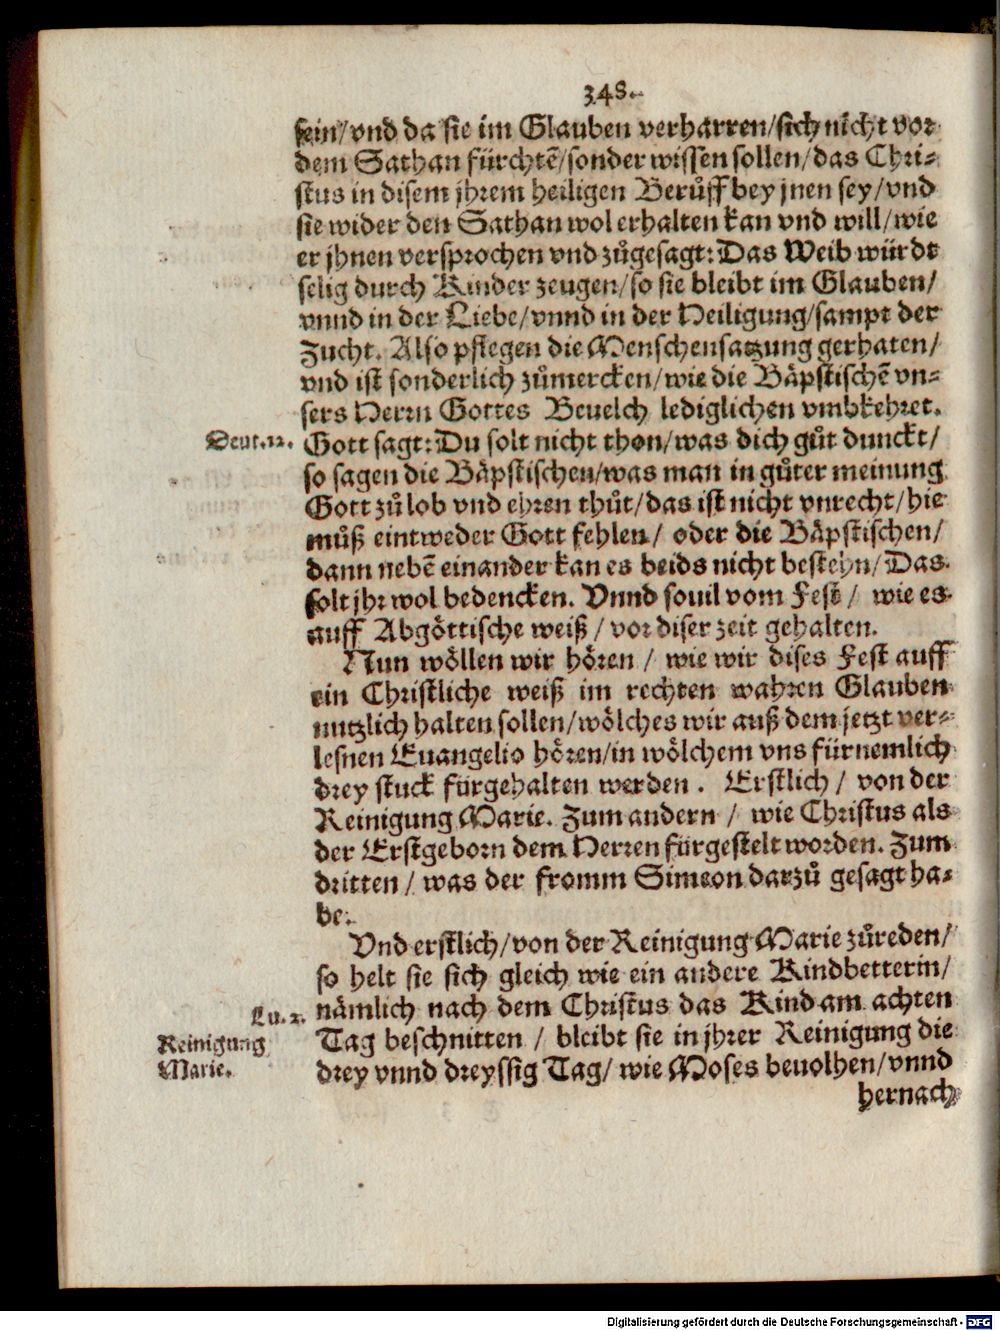 348.
sein/vnd da sie im Glauben verharren/sich nicht vor
dem Sathan fürchtē/sonder wissen sollen/das Chri-
stus in disem jhrem heiligen Berůff bey jnen sey/vnd
sie wider den Sathan wol erhalten kan vnd will/wie
er jhnen versprochen vnd zůgesagt: Das Weib würdt
selig durch Kinder zeugen/so sie bleibt im Glauben/
vnnd in der Liebe/vnnd in der Heiligung/sampt der
Zucht. Also pflegen die Menschensatzung gerhaten/
vnd ist sonderlich zůmercken/wie die Bäpstischē vn-
sers Herrn Gottes Beuelch lediglichen vmbkehret.
Deut.12. Gott sagt: Du solt nicht thon/was dich gůt dunckt/
so sagen die Bäpstischen/was man in gůter meinung
Gott zů lob vnd ehren thůt/das ist nicht vnrecht/hie
můß eintweder Gott fehlen/ oder die Bäpstischen/
dann nebē einander kan es beids nicht bestehn/Das
solt jhr wol bedencken. Vnnd souil vom Fest/ wie es
auff Abgöttische weiß/vor diser zeit gehalten.
Nun wöllen wir hören/ wie wir dises Fest auff
ein Christliche weiß im rechten wahren Glauben
nutzlich halten sollen/wölches wir auß dem jetzt ver-
lesnen Euangelio hören/in wölchem vns fürnemlich
drey stuck fürgehalten werden. Erstlich/ von der
Reinigung Marie. Zum andern/ wie Christus als
der Erstgeborn dem Herren fürgestelt worden. Zum
dritten/ was der fromm Simeon darzů gesagt ha-
be.
Vnd erstlich/von der Reinigung Marie zůreden/
so helt sie sich gleich wie ein andere Kindbetterin/
nämlich nach dem Christus das Kind am achten
Lu. 2.
Reinigung Tag beschnitten/ bleibt sie in jhrer Reinigung die
Marie. drey vnnd dreyssig Tag/ wie Moses beuolhen/vnnd
hernach
Digitalisierung gefördert durch die Deutsche Forschungsgemeinschaft - DFG